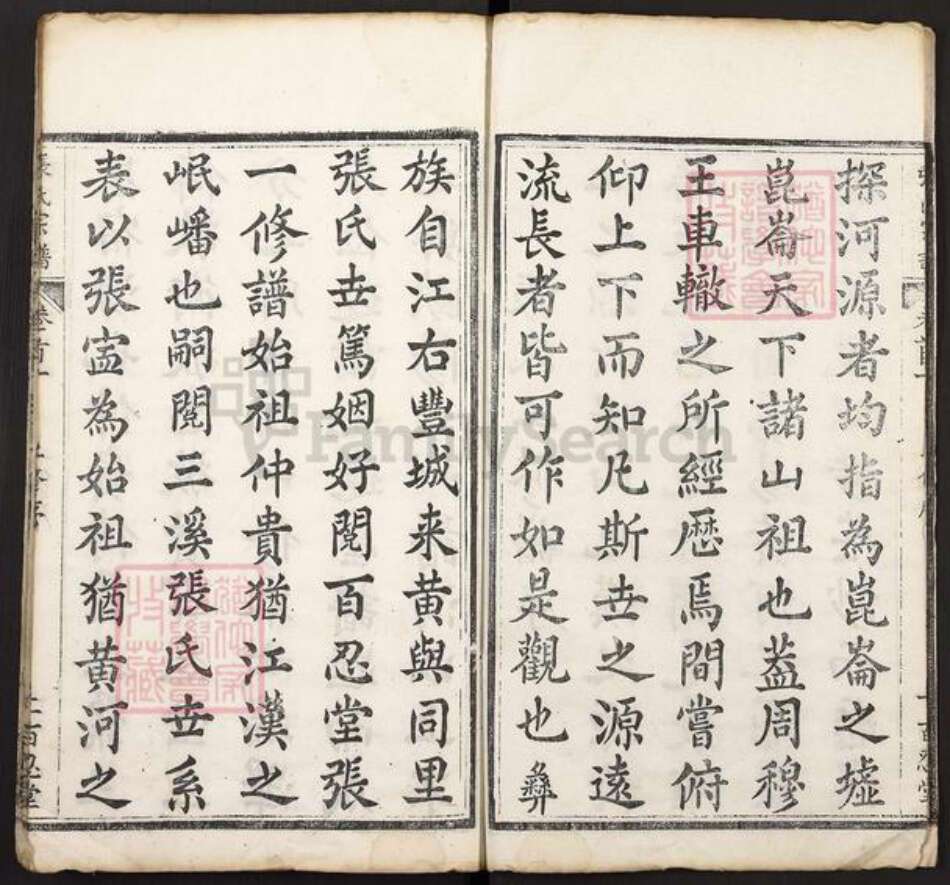 探河源者均指為崑崙之墟
崑崙天下諸山祖也葢周穆
王車轍之所經歷焉間嘗俯
仰上下而知凡斯丗之源遠
流長者皆可作如是觀也彜
族自江右豐城来黄與同里
張氏丗篤姻好閱百忍堂張
一修譜始祖仲貴猶江漢之
岷嶓也嗣閱三溪張氏丗系
表以張寍為始祖猶黄河之
張氏宗譜 卷首一 二百忍堂
FamilySearch